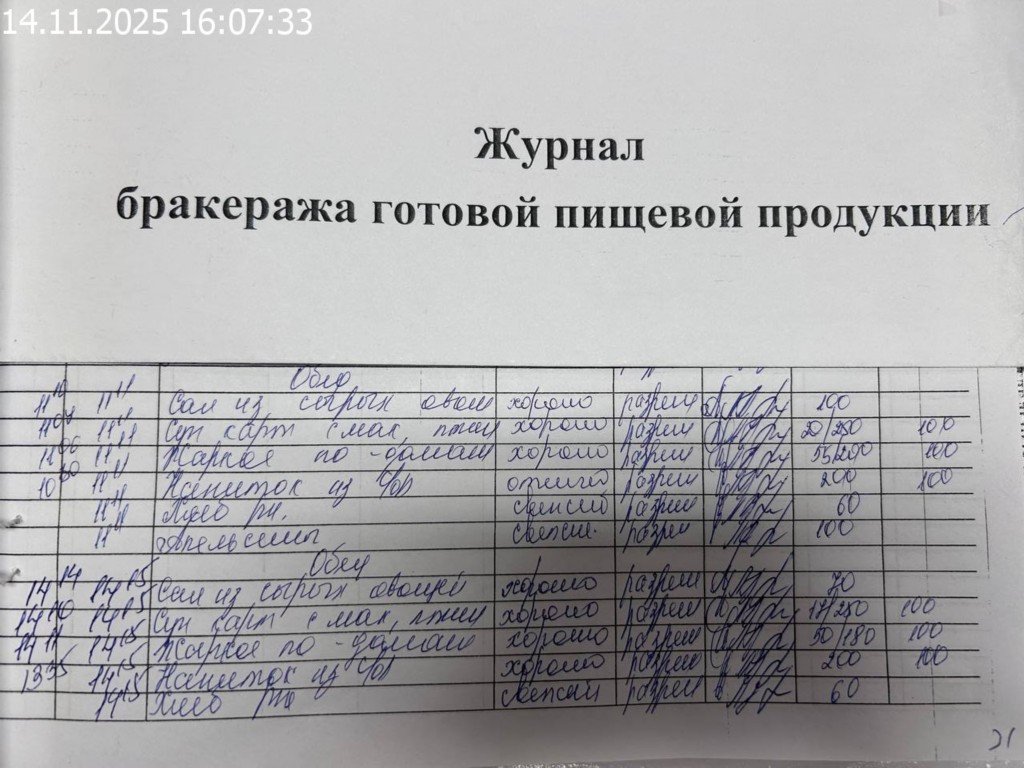 14.11.2025 16:07:33
Журнал
бракеража готовой пищевой продукции
Обед
11 10 11 11 Сал из сырых овощ хорошо разреш 100
11 11 Суп карт с мак, птиц хорошо разреш 20/250 100
11 11 Жаркое по-домаш хорошо разреш 100
10 11 11 Напиток из отлично разреш 200 100
11 11 Хлеб рж. свежий разреш 60
11 11 Апельсины свежие. разреш 100
Обед
14 14 14 15 Сал из сырых овощей хорошо разреш 70
14 10 14 15 Суп карт с мак, птиц хорошо разреш 17/250 100
14 11 14 15 Жаркое по-домаш хорошо разреш 50/180 100
13 55 14 15 Напиток из хорошо разреш 200 100
14 15 Хлеб рж свежий разреш 60
21